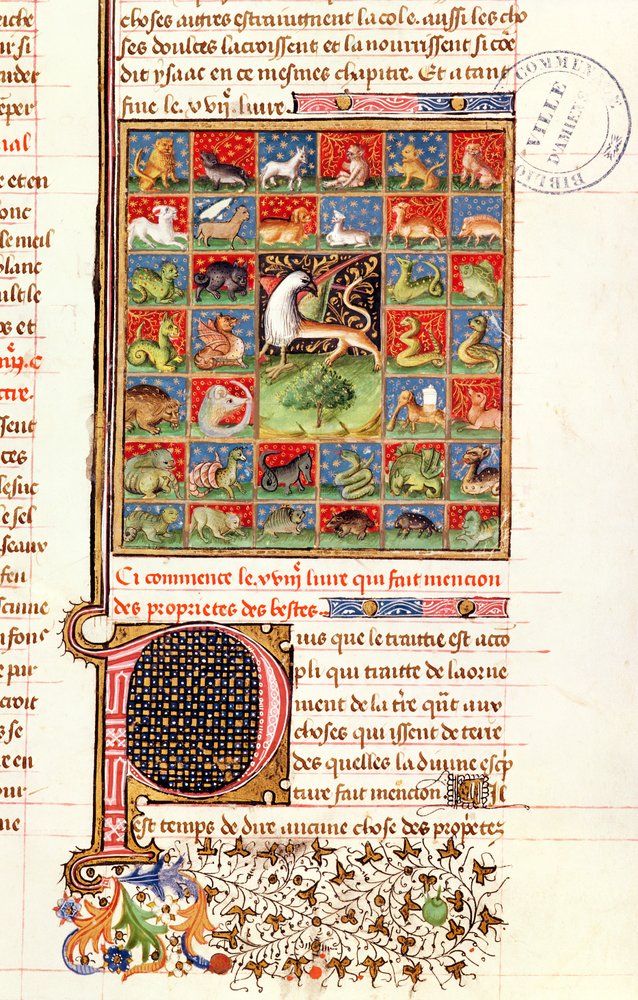 euche
ur si
uder
eper
ial
e et en
onc
le meil
blanc
ault le
os et
iiij. c
ctre.
ssent
ces
le suc
le sel
seaux
feu
scune
n fons
e pur
croit
s se
re en
our
me
choses autres estraingnent la cole. aussi les cho
ses doulces lacroissent et la nourrissent si cõe
dit ysaac en ce mesmes chapitre. Et a tant
fine le xvijᵉ liure.
BIBLIO COMMUNALE
VILLE
D'AMIENS
Ci commence le xviijᵉ liure qui fait mencion
des proprietes des bestes.
Puis que le traittie est acõ
pli qui traitte de laorne
ment de la tr̃e qũt aux
choses qui issent de terre
des quelles la diuine escp
ture fait mencion Il
est temps de dire aucune chose des prop̃etez